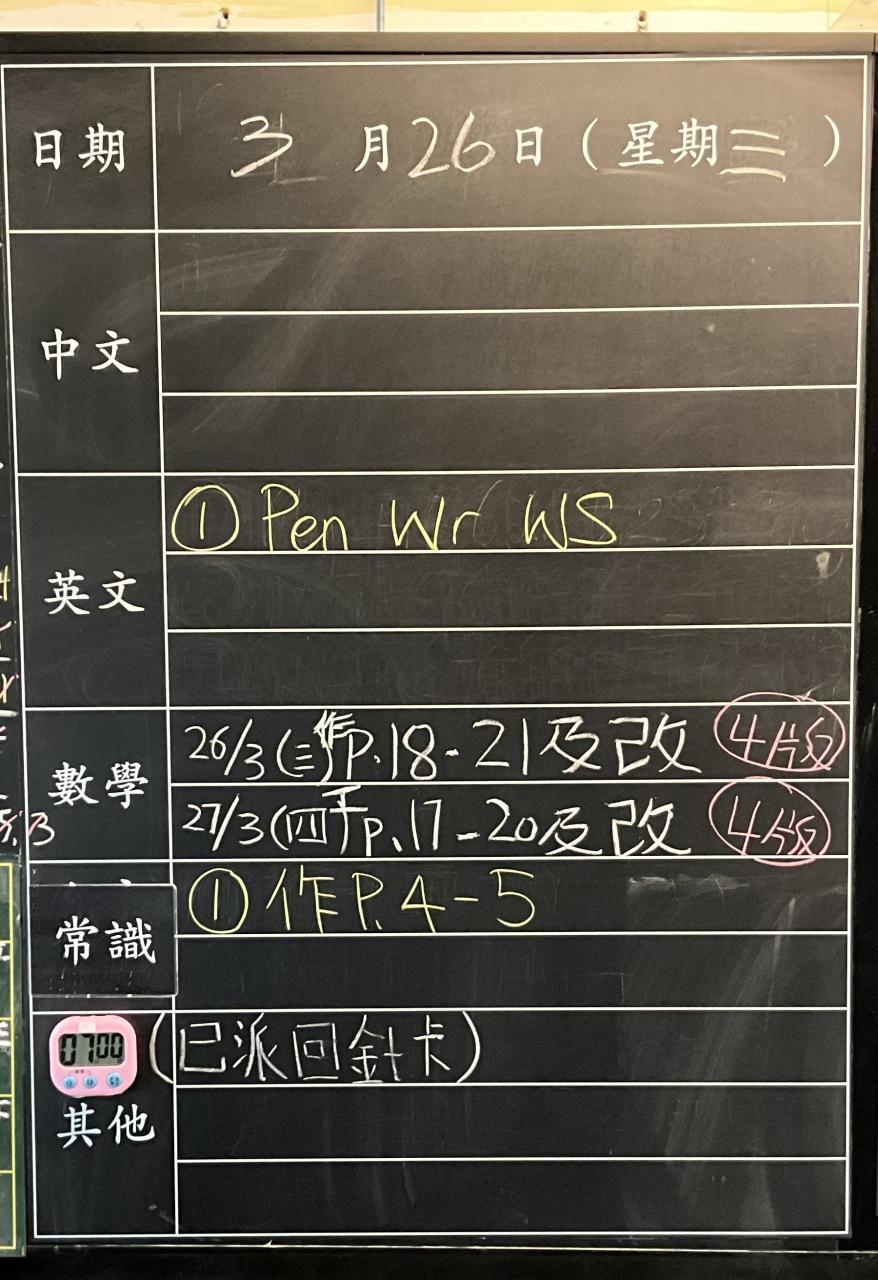 日期 3月26日（星期三）
中文
英文
① Pen Wr WS
數學
26/3 (三) 作P.18-21及改 4片
27/3 (四) p.17-20及改 4片
常識
① 作P.4-5
其他
07:00
(已派回針卡)